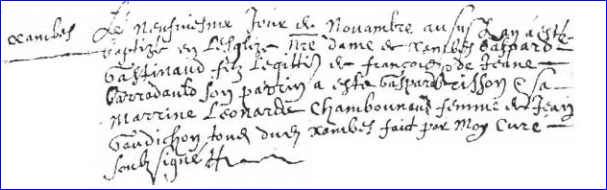 xambes Le neufviesme Jour de Novambre au susd. Lan a este
baptizé en Lesglize nre dame de xambes Gaspard
Gastinaud filz Legittē de francois et de Jeanne
Barradauld son parrin a este Gaspard brisson & sa
Marrine Leonarde Chambounaud femme de Jean
Gaudichon tous dud. xambes faict par Moy Curé
soubsigné